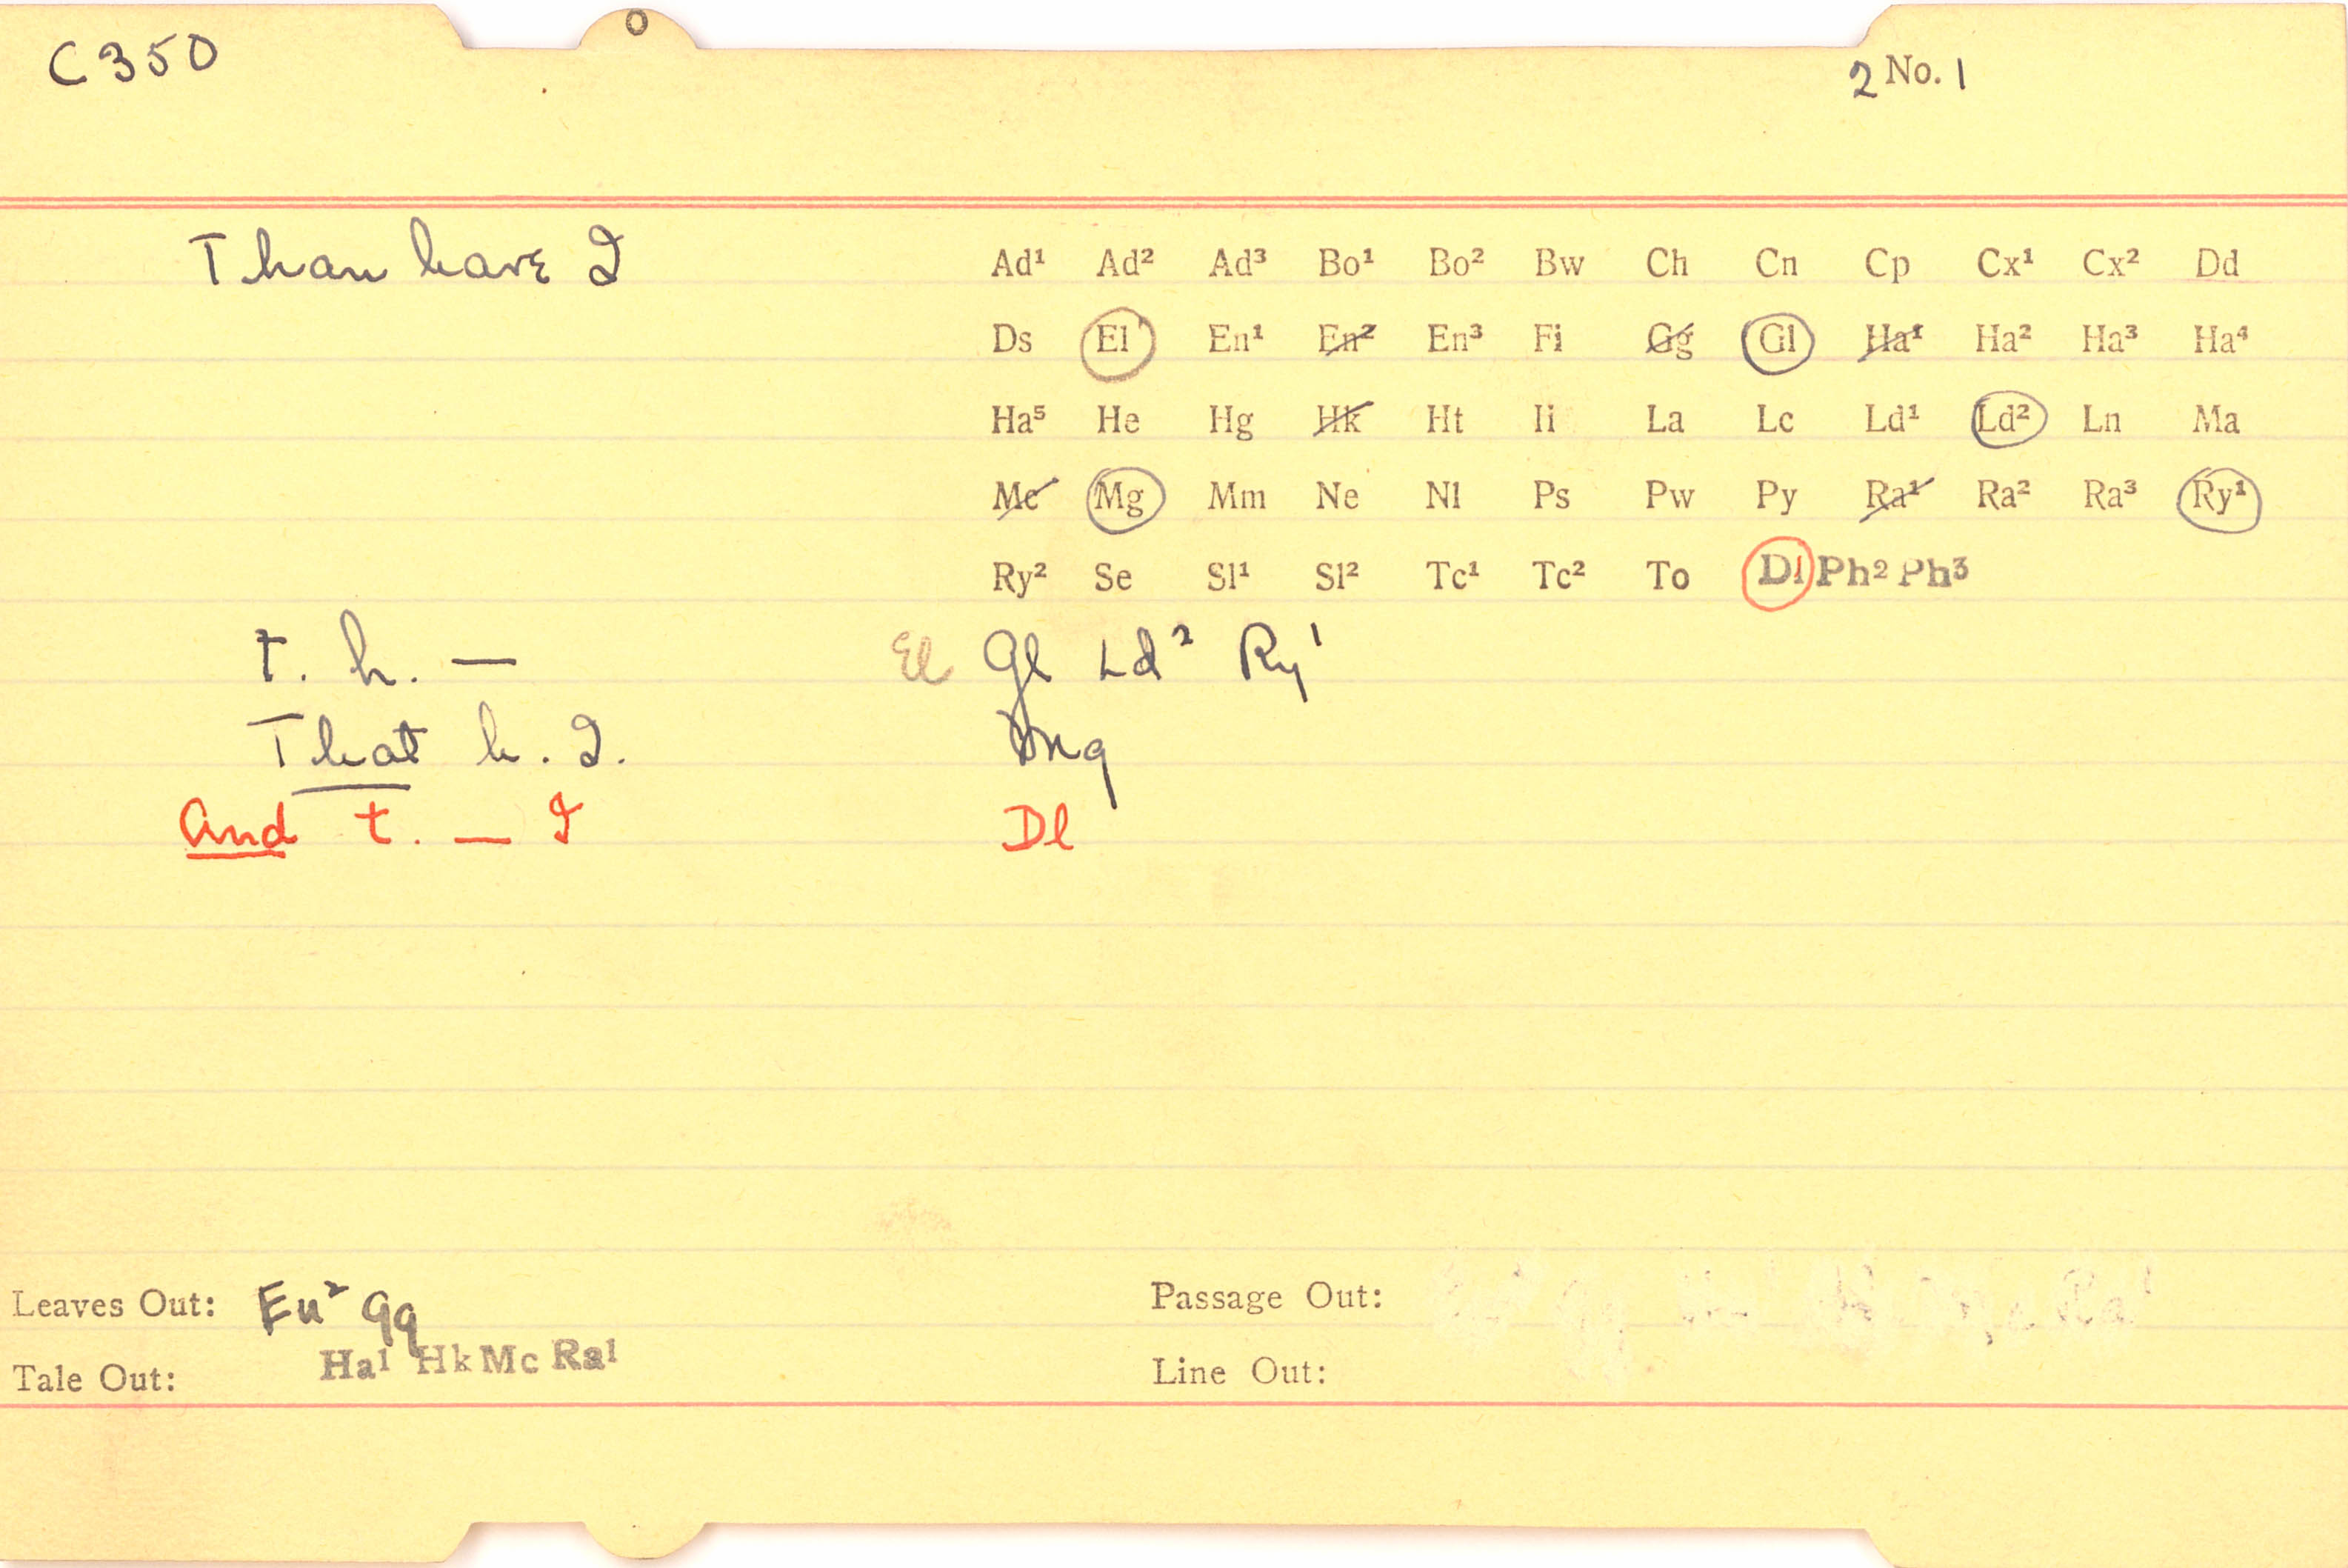 C 350
2 No. 1
Than have I
Ad¹ Ad² Ad³ Bo¹ Bo² Bw Ch Cn Cp Cx¹ Cx² Dd
Ds El En¹ En² En³ Fi Gg Gl Ha¹ Ha² Ha³ Ha⁴
Ha⁵ He Hg Hk Ht Ii La Lc Ld¹ Ld² Ln Ma
Mc Mg Mm Ne Nl Ps Pw Py Ra¹ Ra² Ra³ Ry¹
Ry² Se Sl¹ Sl² Tc¹ Tc² To Dl Ph² Ph³
t. h. — El Gl Ld² Ry¹
That h. I. Mg
And t. — I Dl
Leaves Out: En² Gg
Passage Out:
Ha¹ Hk Mc Ra¹
Tale Out:
Line Out: